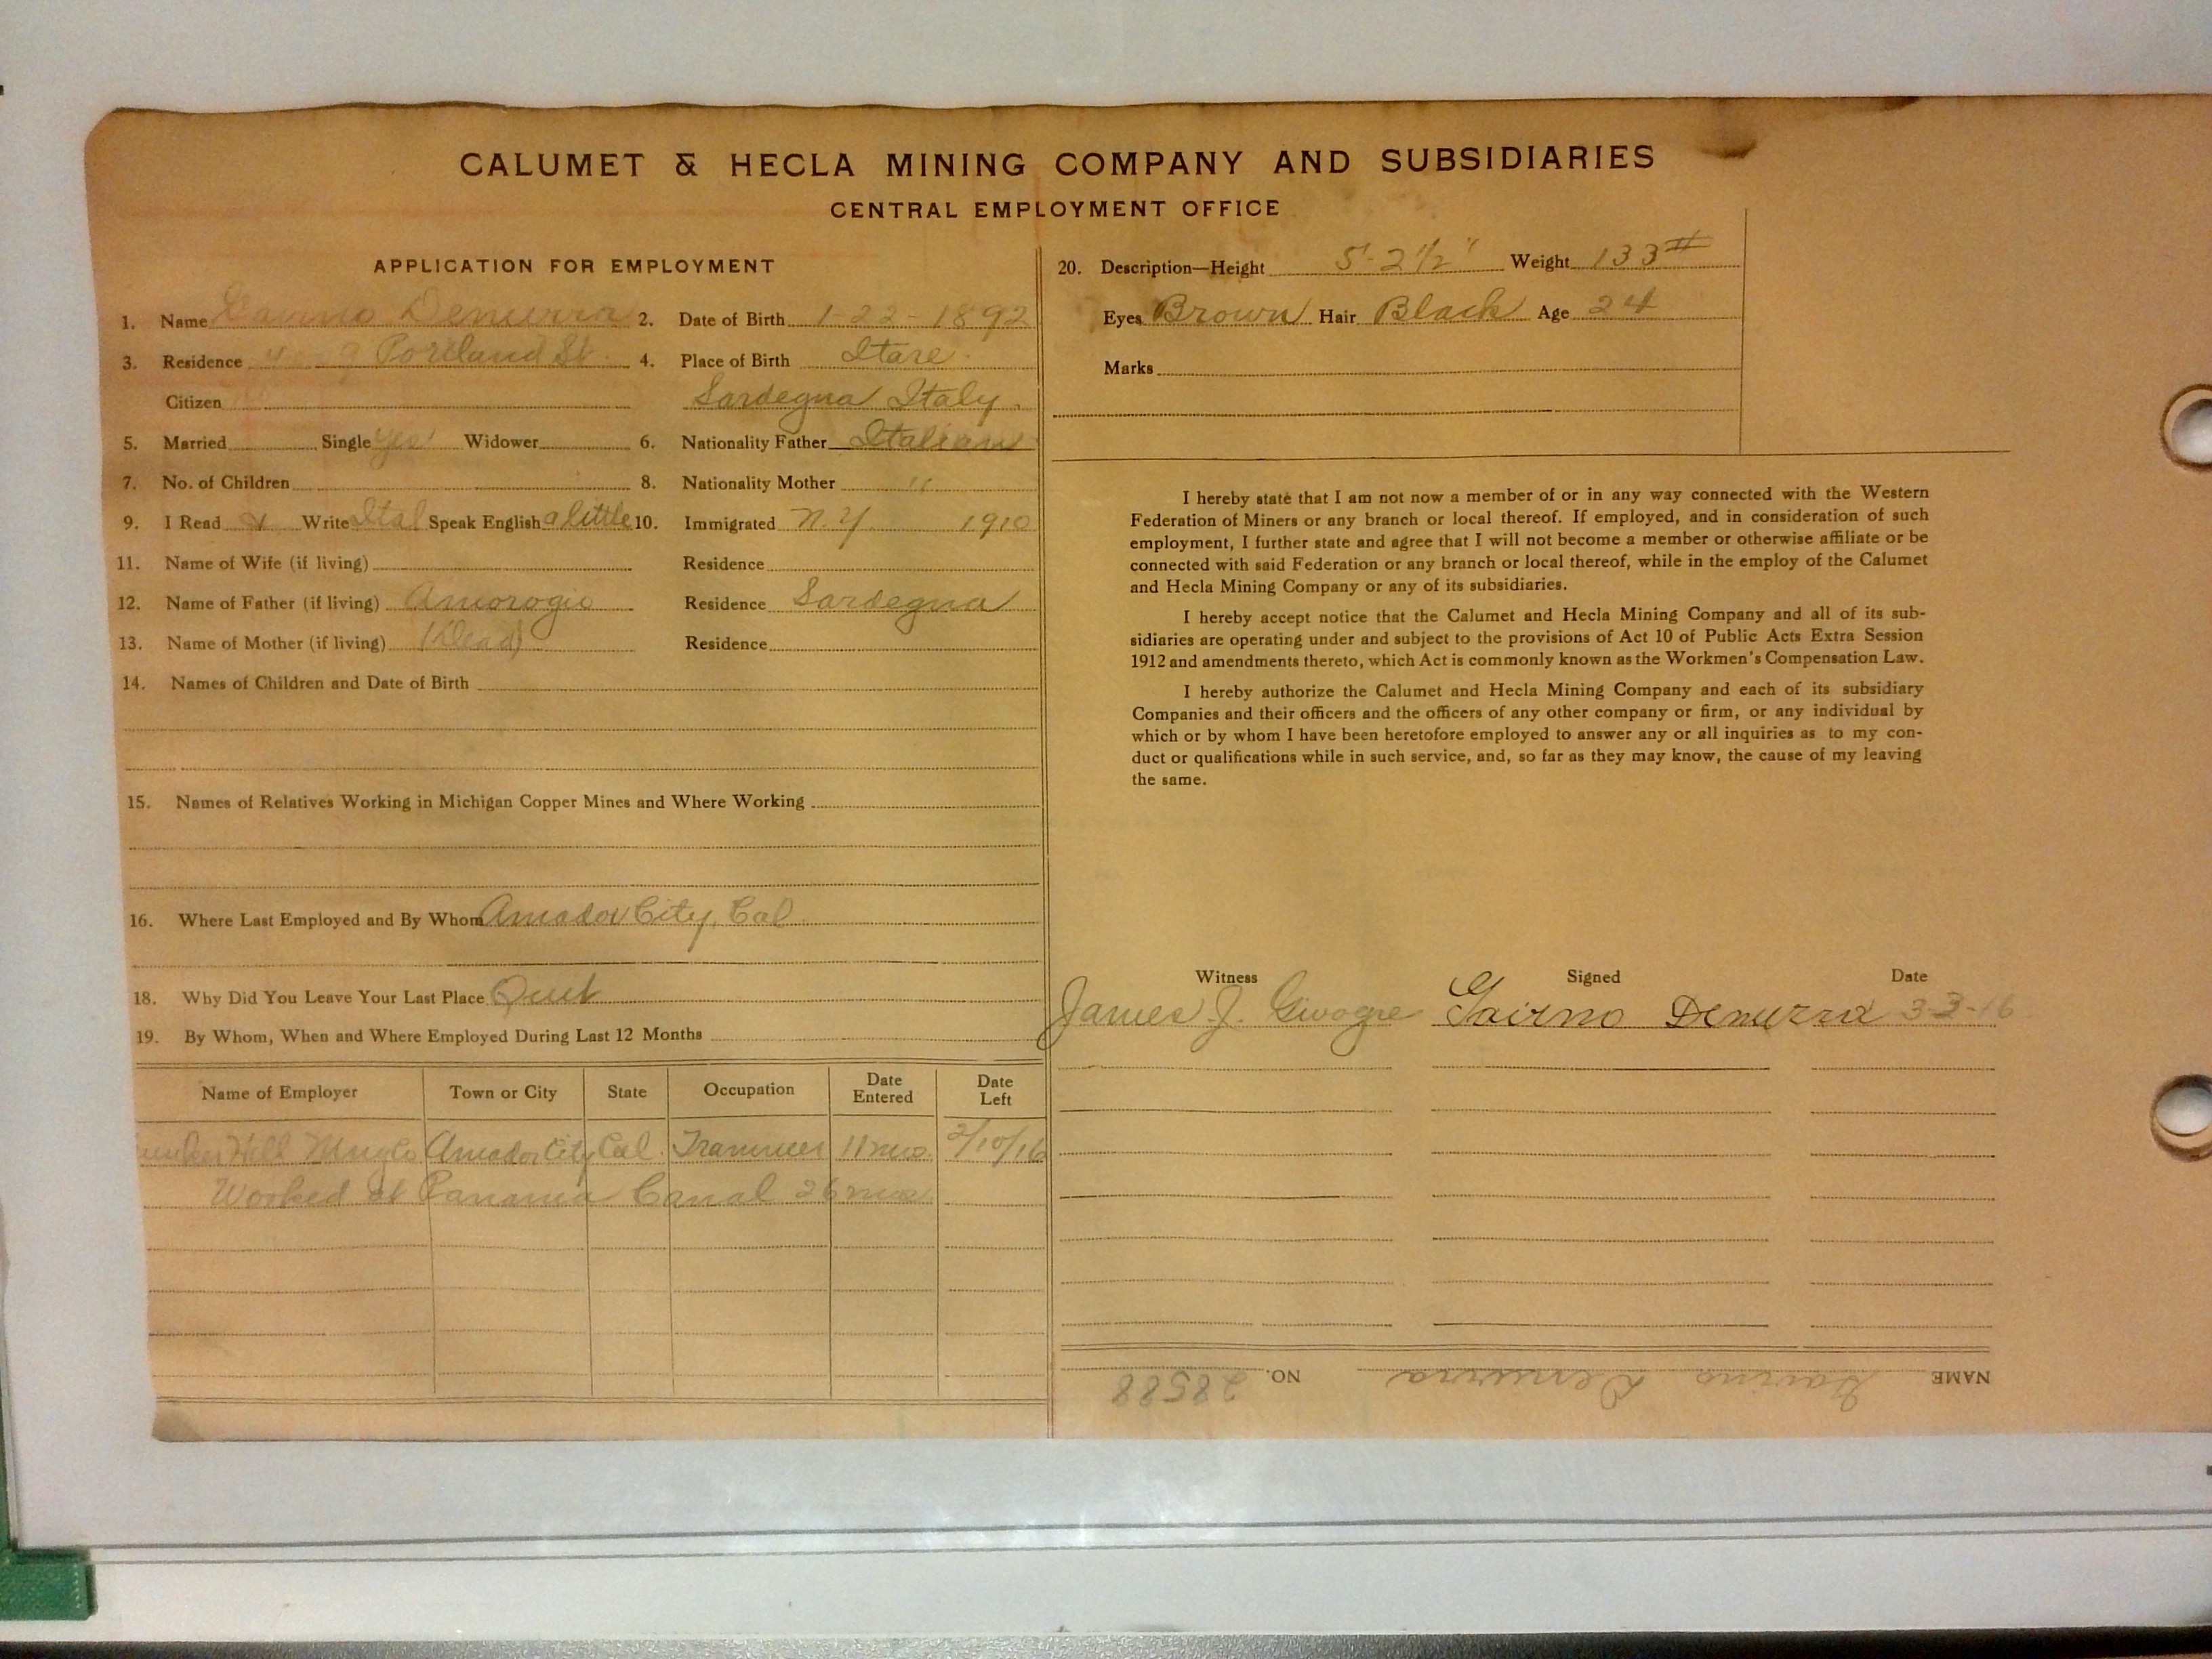 CALUMET & HECLA MINING COMPANY AND SUBSIDIARIES
CENTRAL EMPLOYMENT OFFICE
APPLICATION FOR EMPLOYMENT
1. Name Gavino Demurra 2. Date of Birth 1-22-1892
3. Residence Portland St. 4. Place of Birth Itare.
Citizen Sardegna Italy.
5. Married Single yes Widower 6. Nationality Father Italian
7. No. of Children 8. Nationality Mother "
9. I Read & Write Ital Speak English a little 10. Immigrated N.Y. 1910
11. Name of Wife (if living) Residence
12. Name of Father (if living) Amorogio Residence Sardegna
13. Name of Mother (if living) (Dead) Residence
14. Names of Children and Date of Birth
15. Names of Relatives Working in Michigan Copper Mines and Where Working
16. Where Last Employed and By Whom Amador City, Cal
18. Why Did You Leave Your Last Place Quit
19. By Whom, When and Where Employed During Last 12 Months
Name of Employer Town or City State Occupation Date Entered Date Left
Hill Mng Co Amador City Cal. Trammer 11 mos. 2/10/16
Worked at Panama Canal 26 mos.
20. Description—Height 5'-2 1/2" Weight 133#
Eyes Brown Hair Black Age 24
Marks
I hereby state that I am not now a member of or in any way connected with the Western
Federation of Miners or any branch or local thereof. If employed, and in consideration of such
employment, I further state and agree that I will not become a member or otherwise affiliate or be
connected with said Federation or any branch or local thereof, while in the employ of the Calumet
and Hecla Mining Company or any of its subsidiaries.
I hereby accept notice that the Calumet and Hecla Mining Company and all of its sub-
sidiaries are operating under and subject to the provisions of Act 10 of Public Acts Extra Session
1912 and amendments thereto, which Act is commonly known as the Workmen's Compensation Law.
I hereby authorize the Calumet and Hecla Mining Company and each of its subsidiary
Companies and their officers and the officers of any other company or firm, or any individual by
which or by whom I have been heretofore employed to answer any or all inquiries as to my con-
duct or qualifications while in such service, and, so far as they may know, the cause of my leaving
the same.
Witness Signed Date
James J. Givogre Gairno Demurra 3-3-16
NAME Gavino Demurra NO. 28588